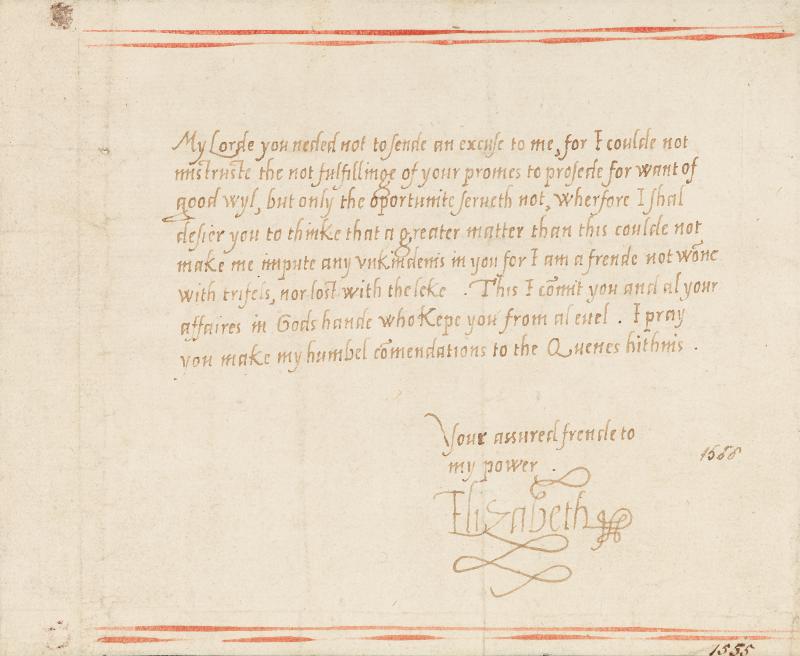 My Lorde you neded not to sende an excuse to me, for I coulde not
mistruste the not fulfillinge of your promes to prosede for want of
good wyl, but only the oportunite serueth not, wherfore I shal
desier you to thinke that a greater matter than this coulde not
make me impute any vnkindenis in you for I am a frende not wōne
with trifels, nor lost with the leke . This I cōmit you and al your
affaires in Gods hande who Kepe you from al euel . I pray
you make my humbel cōmendations to the Quenes hithnis .
Your assured frende to
my power .
1588
Elizabeth
1555